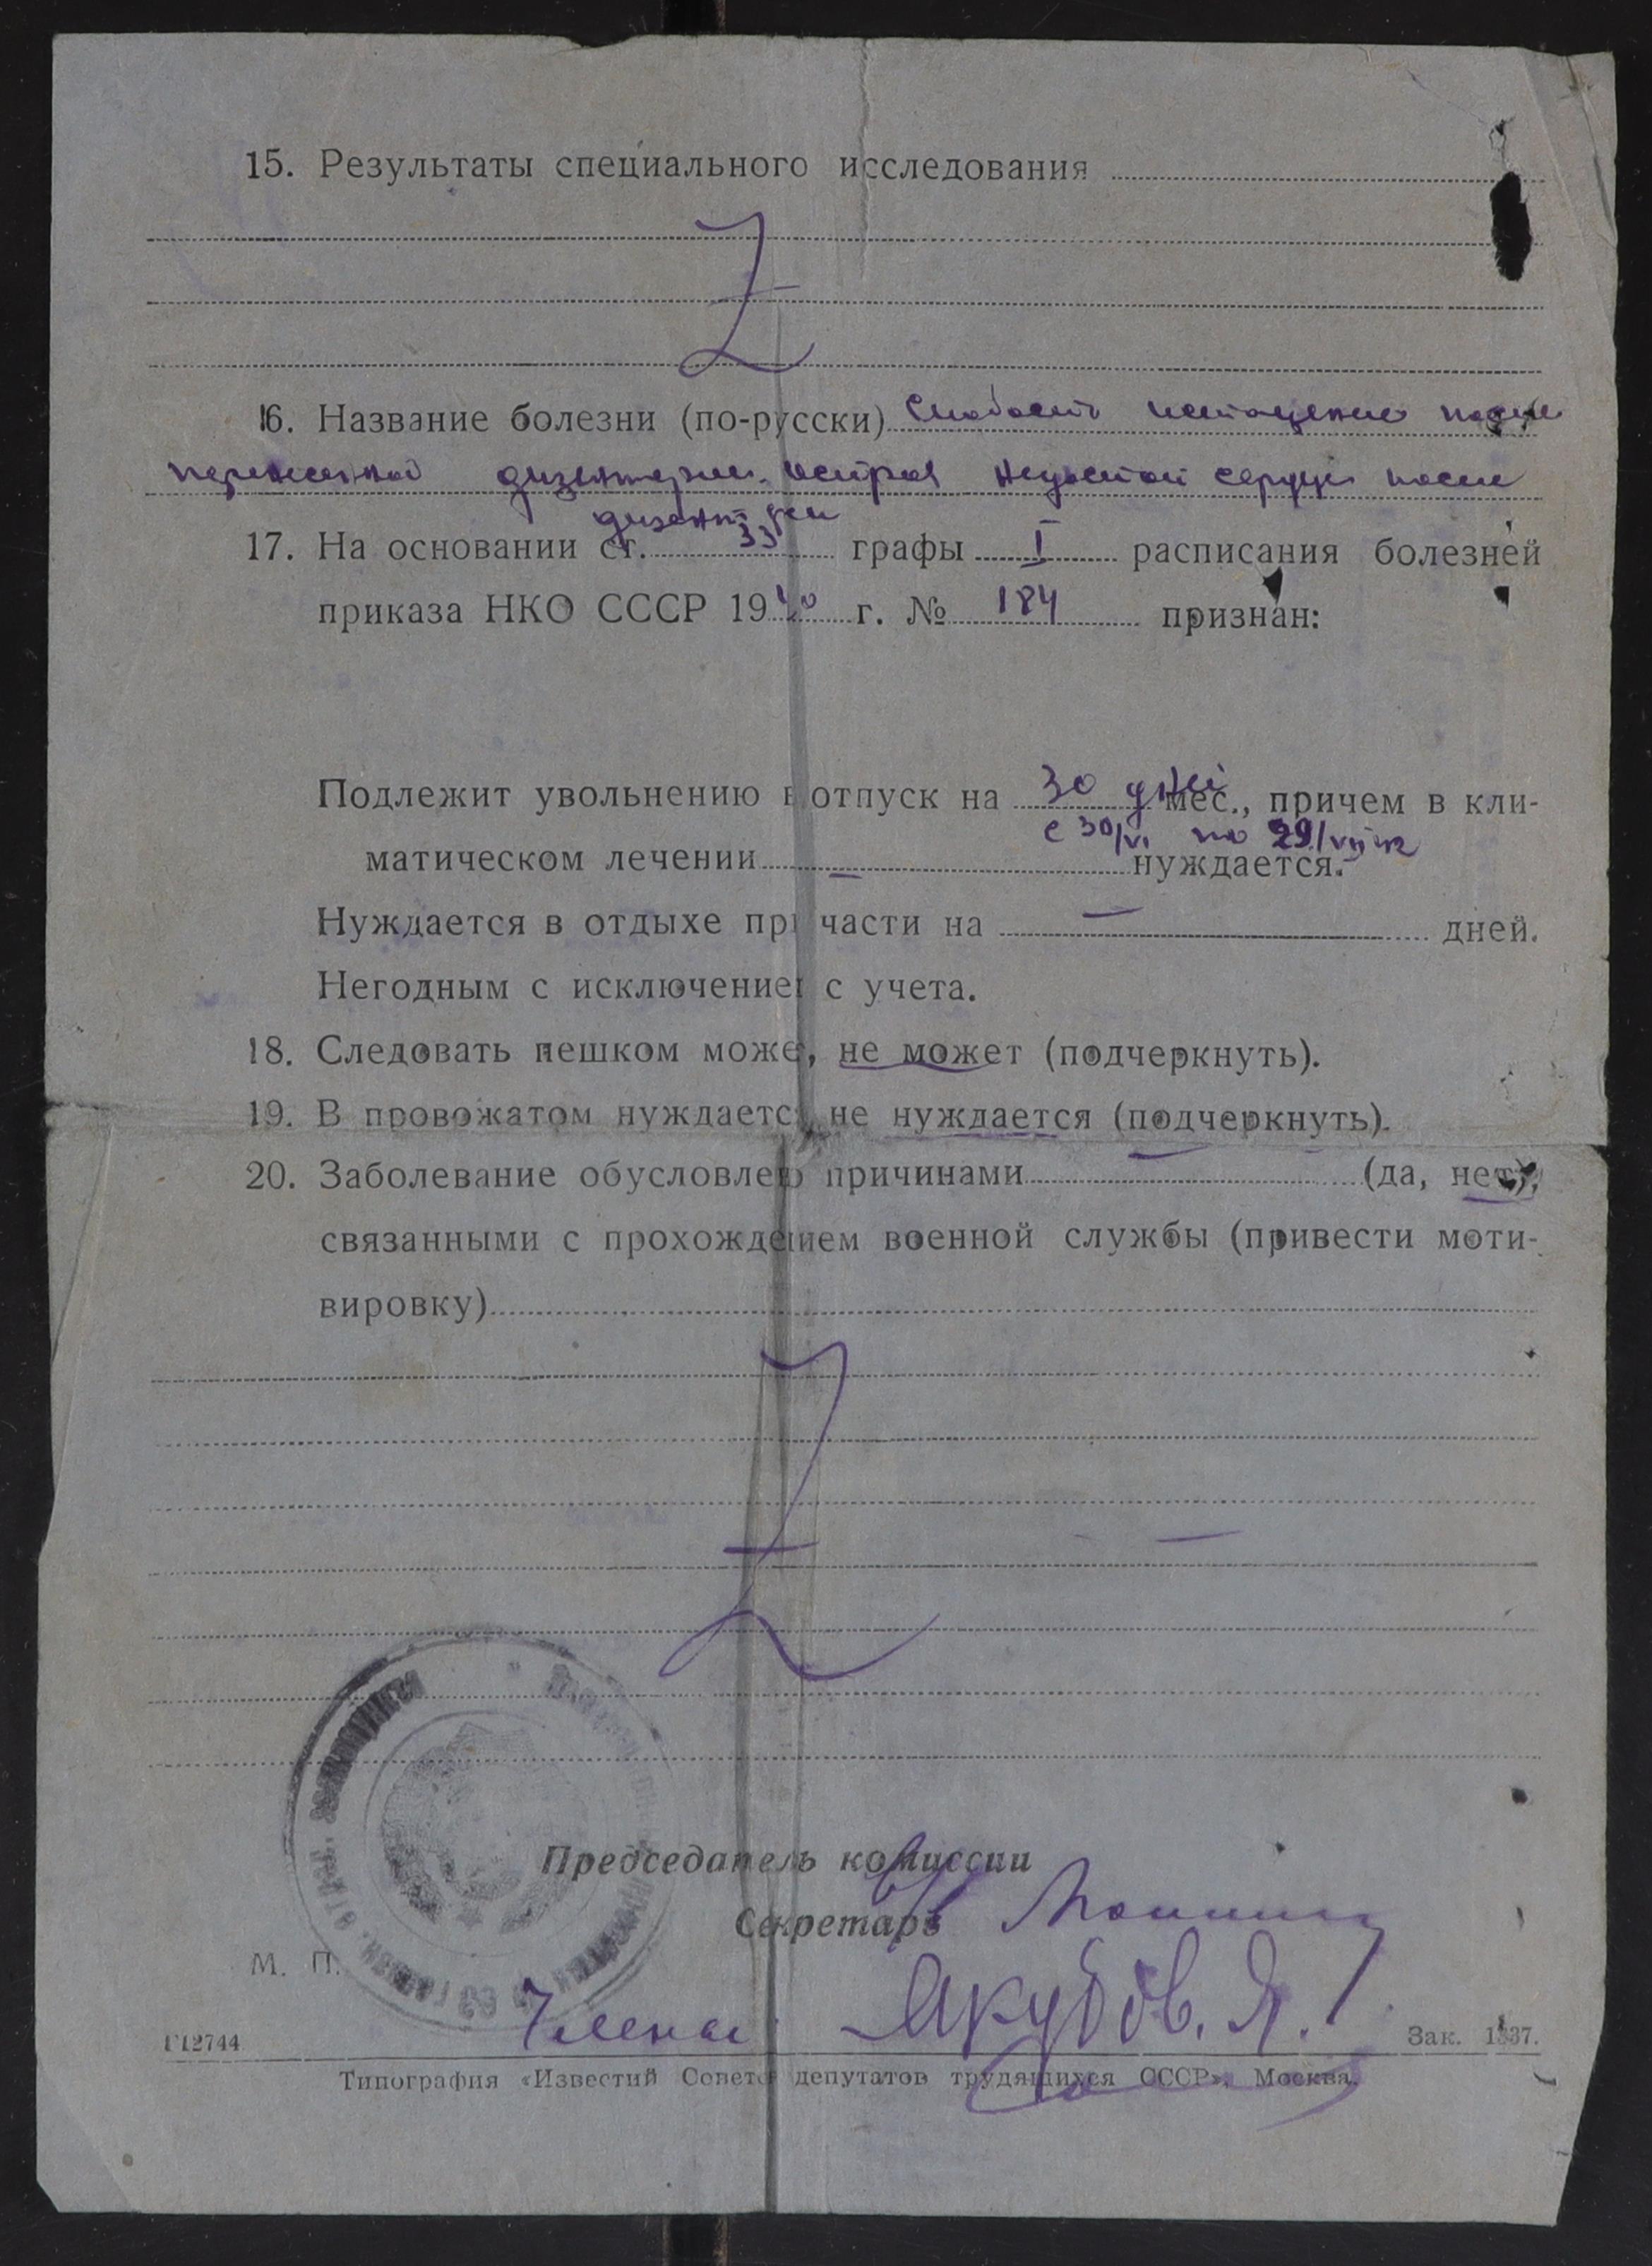 15. Результаты специального исследования
Z
16. Название болезни (по-русски) Слабость истощение после
перенесенной дизентерии. острая недостат сердца после
дизент
17. На основании ст. 33 графы I расписания болезней
приказа НКО СССР 1940 г. № 184 признан:
Подлежит увольнению в отпуск на 30 дней мес., причем в кли-
с 30/VI по 29/VII 42
матическом лечении — нуждается.
Нуждается в отдыхе при части на — дней.
Негодным с исключением с учета.
18. Следовать пешком может, не может (подчеркнуть).
19. В провожатом нуждается, не нуждается (подчеркнуть).
20. Заболевание обусловлено причинами — (да, нет),
связанными с прохождением военной службы (привести моти-
вировку)
Z
Председатель комиссии
Секретарь
М. П.
Члены Якубов. Я.
Г12744 Зак. 1337.
Типография «Известий Советов депутатов трудящихся СССР», Москва.